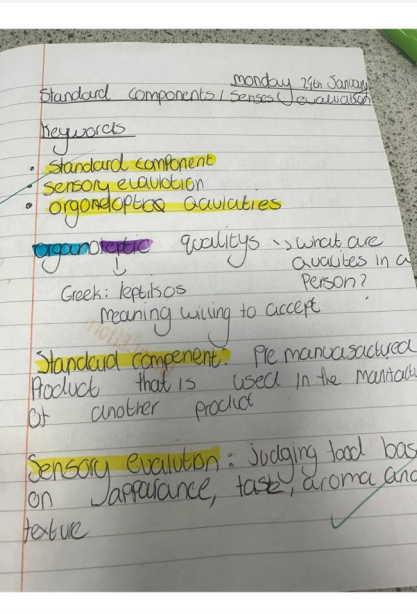 monday 29th January
Standard components / Senses evaluation
Keywords
• standard component
• sensory evaulotion
• orgoneloptic qaulaties
organoleptic qualitys >> what are
qualites in a
Person?
Greek: leptikos
meaning willing to accept
Standard component: Pre manufactured
Product that is used in the
of another product
Sensory evalution: Judging food bas
on appearance, taste, aroma and
texture